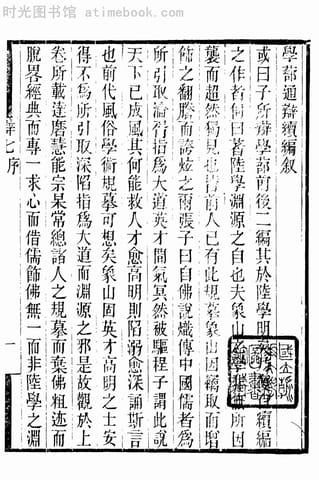 时光图书馆 - atimebook.com
學蔀通辯續編敘
或曰子所辯學蔀前後二編其於陸學明矣 續編
之作者何曰著陸學淵源之自也夫象山之學 無所因
襲而超然獨見也昔前人已有此規摹象山因竊取而
飾之翻騰而誇炫之爾張子曰自佛說熾傳中國儒者爲
所引取淪胥指爲大道英才間氣冥然被驅程子謂此說
天下已成風其何能救人才愈高明則陷溺愈深誦斯言
也前代風俗學術規摹可想矣象山固英才高明之士安
得不爲所引取深陷指爲大道而淵源之邪是故觀於上
卷所載達磨慧能宗杲常總諸人之規摹而葉佛粗迹而
脫畧經典而專一求心而借儒飾佛無一而非陸學之淵
辯七序
一